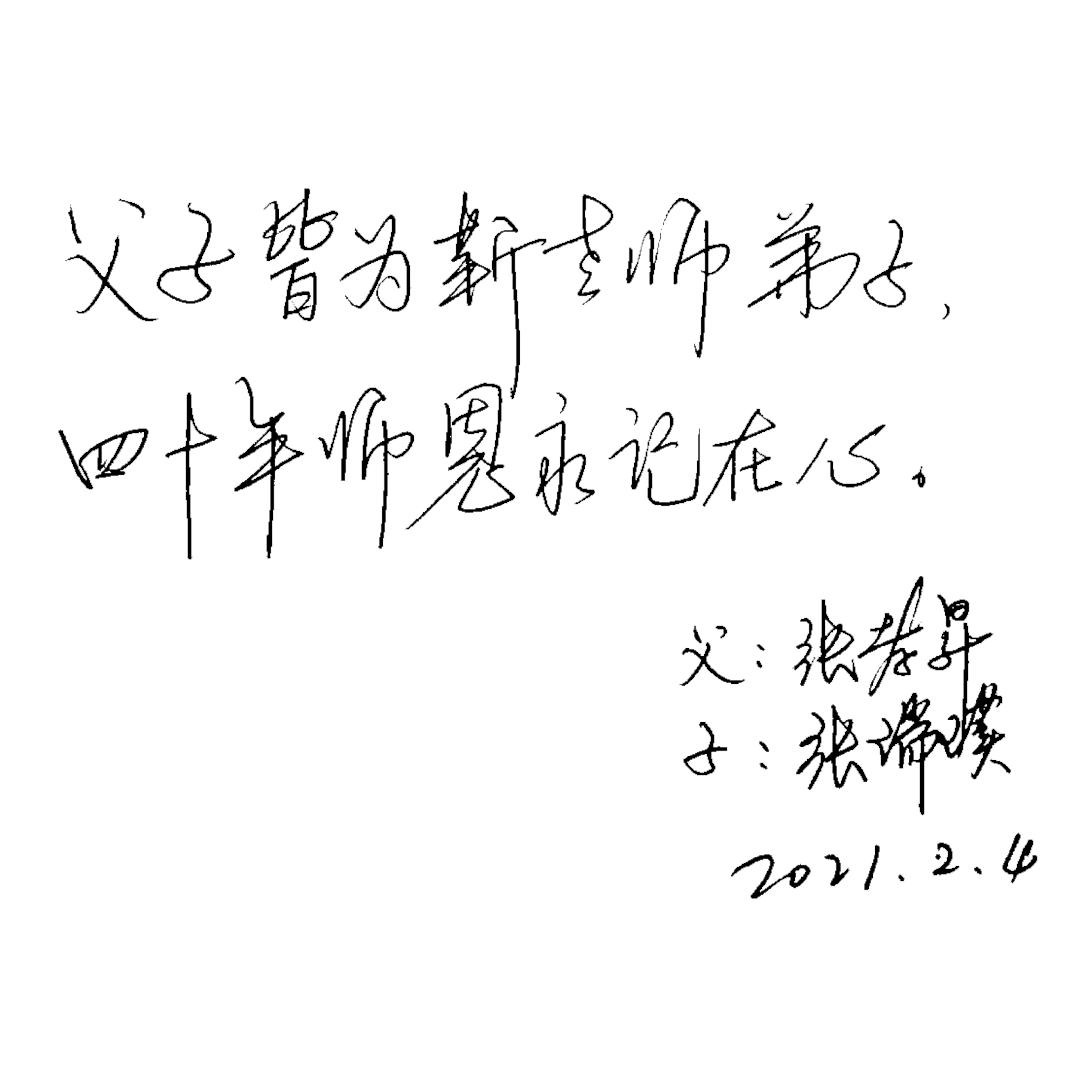 父子皆为靳老师弟子,
四十年师恩永记在心。
父:张孝昇
子:张瑞璞
2021.2.4